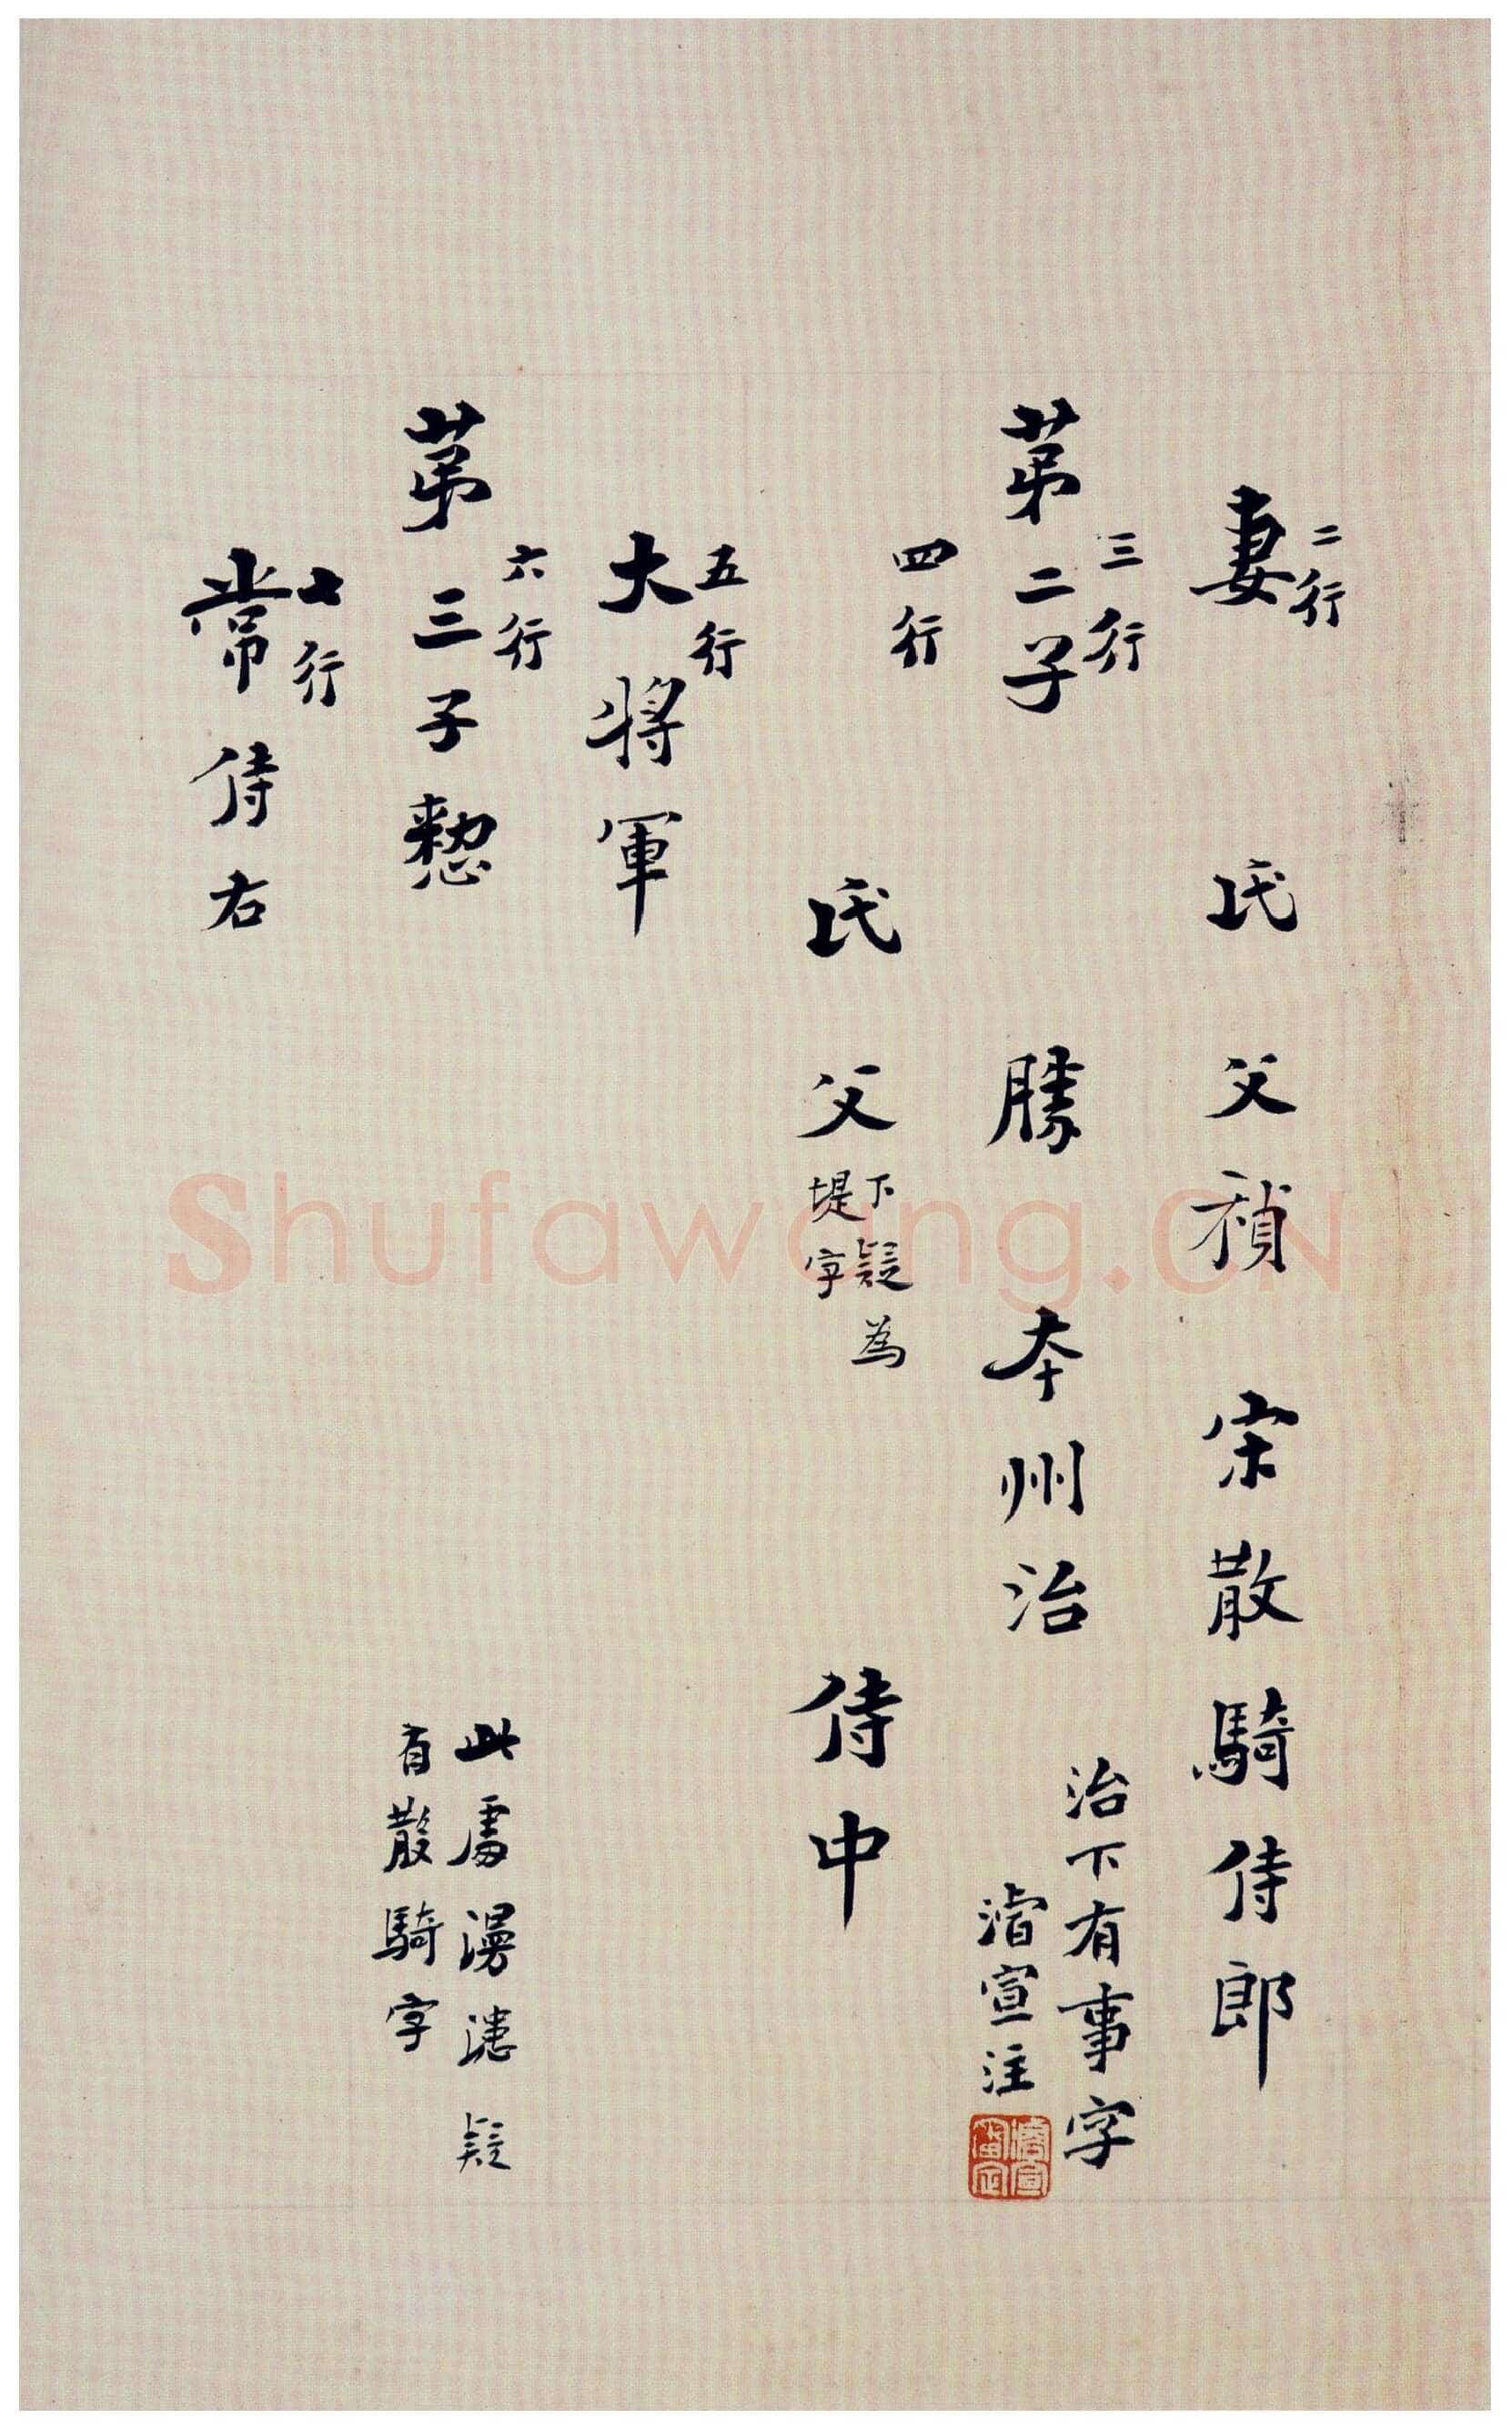 二行
妻 氏 父禎 宋散騎侍郎
三行
苐二子 勝 本州治
治下有事字
濬宣注
四行
氏 父 侍中
下疑為
堤字
五行
大將軍
六行
苐三子
此處漫漶疑
有散騎字
七行
常侍右
Shufawang.CN